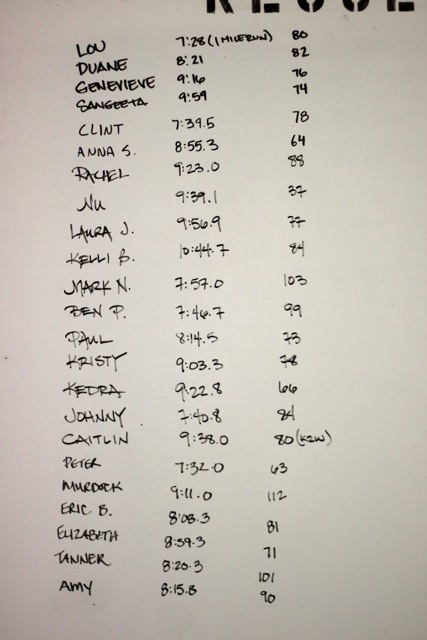 LOU 7:28 (1 MILE RUN) 80
DUANE 8:21 82
GENEVIEVE 9:16 76
SANGEETA 9:59 74
CLINT 7:39.5 78
ANNA S. 8:55.3 64
RACHEL 9:23.0 88
NU 9:39.1 37
LAURA J. 9:56.9 77
KELLI B. 10:44.7 84
MARK N. 7:57.0 103
BEN P. 7:46.7 99
PAUL 8:14.5 73
KRISTY 9:03.3 78
KEDRA 9:22.8 66
JOHNNY 7:40.8 84
CAITLIN 9:38.0 80 (K2W)
PETER 7:32.0 63
MURDOCK 9:11.0 112
ERIC B. 8:08.3 81
ELIZABETH 8:59.3 71
TANNER 8:20.3 101
AMY 8:15.8 90